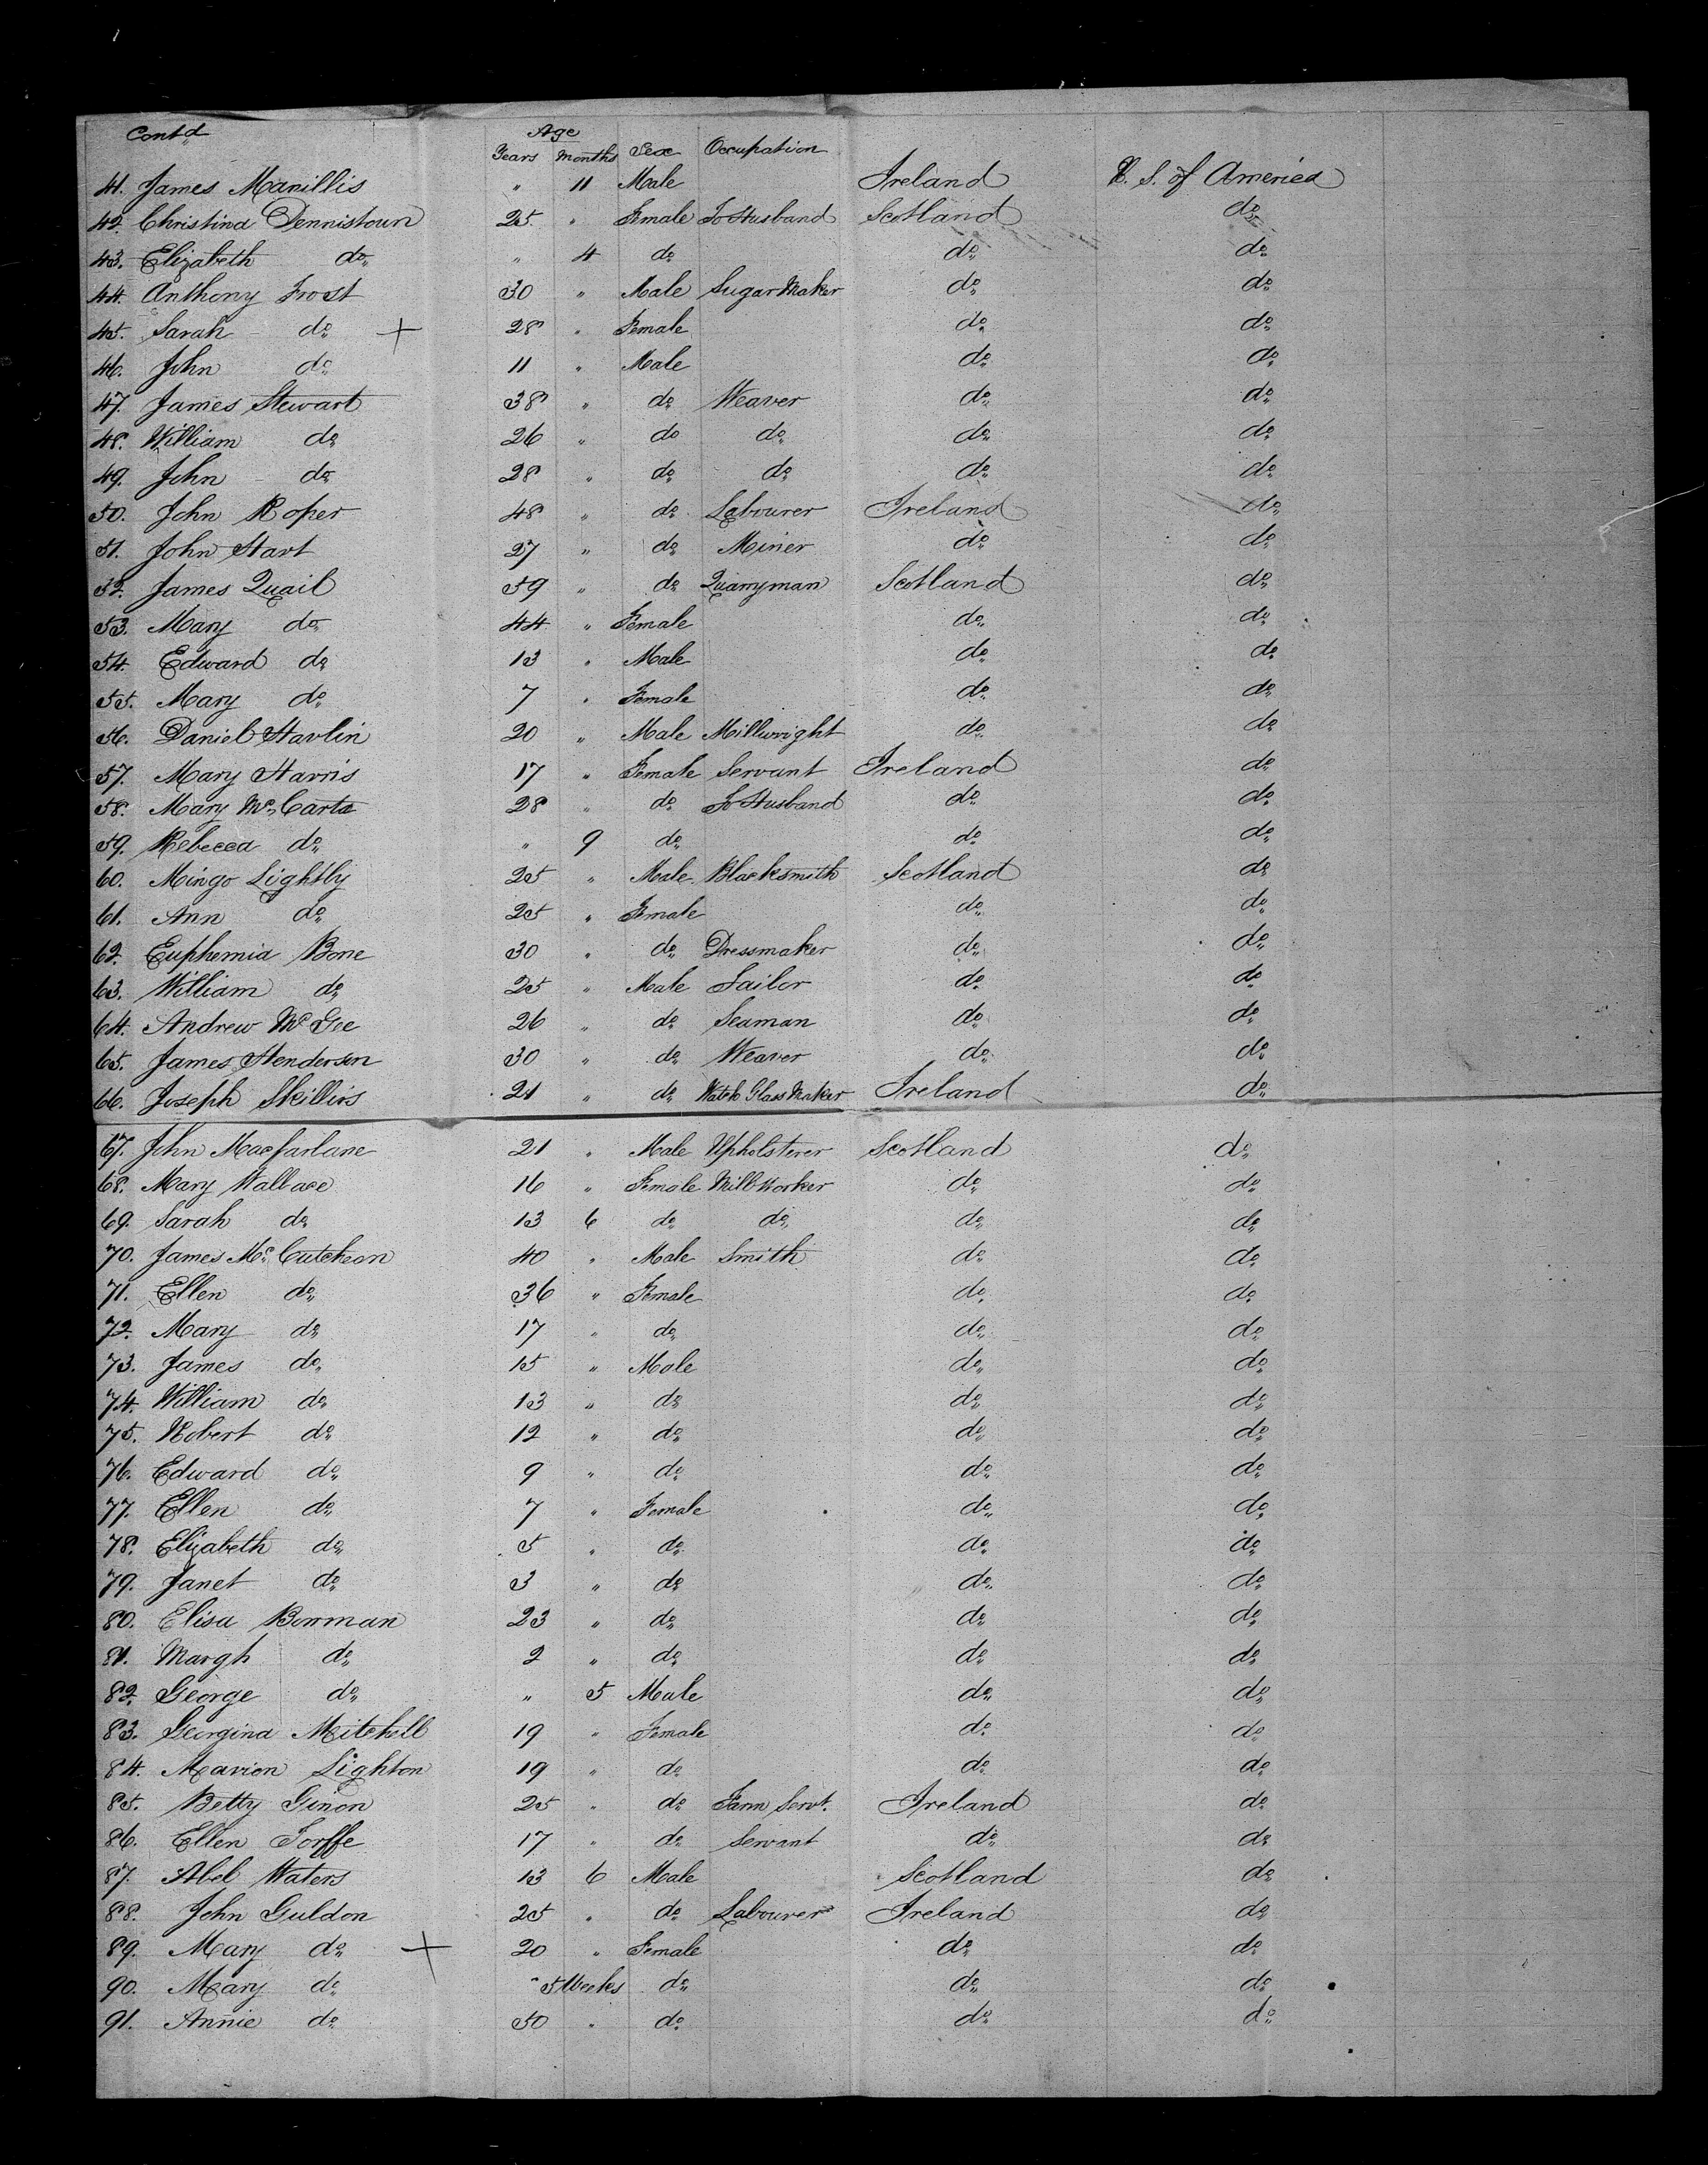 Contd Age
Years Months Sex Occupation
41. James Manillis " 11 Male Ireland U. S. of America
42. Christina Dennistoun 25 " Female To Husband Scotland do
43. Elizabeth do " 4 do do do
44. Anthony Frost 30 " Male Sugar Maker do do
45. Sarah do + 28 " Female do do
46. John do 11 " Male do do
47. James Stewart 38 " do Weaver do do
48. William do 26 " do do do do
49. John do 28 " do do do do
50. John Roper 48 " do Labourer Ireland do
51. John Hart 27 " do Miner do do
52. James Quail 59 " do Quarryman Scotland do
53. Mary do 44 " Female do do
54. Edward do 13 " Male do do
55. Mary do 7 " Female do do
56. Daniel Havlin 20 " Male Millwright do do
57. Mary Harris 17 " Female Servant Ireland do
58. Mary Mc Carta 28 " do To Husband do do
59. Rebecca do " 9 do do do
60. Mingo Lightly 25 " Male Blacksmith Scotland do
61. Ann do 25 " Female do do
62. Euphemia Bone 30 " do Dressmaker do do
63. William do 25 " Male Tailor do do
64. Andrew Mc Gee 26 " do Seaman do do
65. James Henderson 30 " do Weaver do do
66. Joseph Skillirs 21 " do Watch Glass Maker Ireland do
67. John Macfarlane 21 " Male Upholsterer Scotland do
68. Mary Wallace 16 " Female Mill Worker do do
69. Sarah do 13 6 do do do do
70. James Mc Cutcheon 40 " Male Smith do do
71. Ellen do 36 " Female do do
72. Mary do 17 " do do do
73. James do 15 " Male do do
74. William do 13 " do do do
75. Robert do 12 " do do do
76. Edward do 9 " do do do
77. Ellen do 7 " Female do do
78. Elizabeth do 5 " do do do
79. Janet do 3 " do do do
80. Elisa Bowman 23 " do do do
81. Margh do 2 " do do do
82. George do " 5 Male do do
83. Georgina Mitchell 19 " Female do do
84. Marion Lighton 19 " do do do
85. Betty Ginon 25 " do Farm Servt. Ireland do
86. Ellen Torffe 17 " do Servant do do
87. Abel Waters 13 6 Male Scotland do
88. John Guldon 25 " do Labourer Ireland do
89. Mary do + 20 " Female do do
90. Mary do " 5 Weeks do do do
91. Annie do 50 " do do do